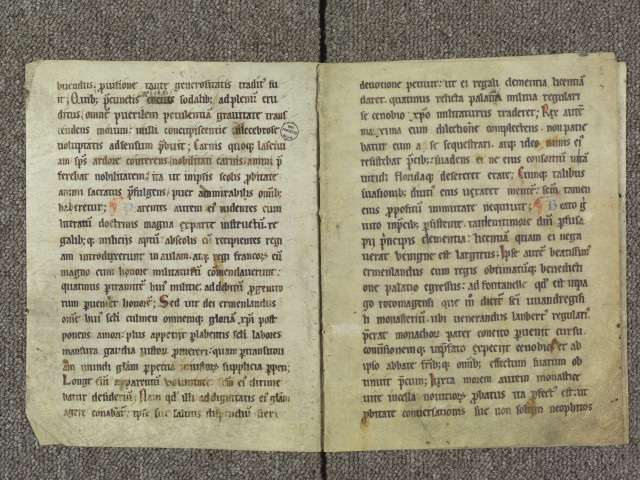 buendus; p̱uisione tante generositatis traditus fu
it; Quib; p̱cunctis sodalib; ad plenū eru
ditus; omnē puerilem petulentiā grauitate trans
cendens morum; nulli concupiscentie illecebrose
uoluptatis adsensum p̄buit; Carnis quoq; lasciui
am sp̄s ardore conterens; nobilitati carnis; animi p̄
ferebat nobilitatem; ita ut ipsis scolis p̱bitate
animi sacratus p̄fulgens; puer admirabilis omib;
haberetur; Parentes autem ei uidentes eum
litteratū doctrinis magna exparte instructū; re
galib; q; militiis aptū; absolis eū recipientes regi
am introduxerunt in aulam. atq; regi francoꝝ eū
magno cum honore militaturū commendauerunt;
quatinus p̱tramitē hui militie; ad debitū p̱genito
rum pueniret honorē; Sed uir dei ermenlandus
omē hui scli culmen omnemq; gloriā xp̄i post
ponens amori; plus appetiit p̱labentis scli labores
mansura gaudia iustoꝝ p̱mereri; quam p̱transitori
mundi glām p̱petua iniustoꝝ supplicia p̱pen;
Longe eni apparentū uoluntate ei dirime
batur desideriū; Nam qd illi ad dignitatis ei glām
agere conabant; ipse sue salutis dispendiū fieri
deuotione petiuit; ut ei regali clementia licentiā
daret. quatinus relicta palatina militia regulari
se cenobio xp̄o militaturus traderet; Rex autē
maxima eum dilectione complectens. non patie
batur eum a se sequestrari. atq; ideo nimis ei
resistebat p̄cib; suadens ei ne eius consortiū uitā
uteretur; Cumq; talibus
suasionib; diuti eius uexaret mentē; sed tamen
eius p̱positū inmutare nequiuit; Beato g̊
uiro inp̄cib; p̱sistente. tandem
pii p̱ncipis clementia; licentiā quam ei nega
uerat benigne est largitus; Ipse autē beatissimus
ermenlandus cum regis optimatūq; benedicti
one palatio egressus; ad fontanelle qd est inpa
go rotomagensi que m̊ dicit sci uuandregisili
monasteriū. ubi uenerandus lantbert regulari
p̱erat monachoꝝ pater concito p̱uenit cursu.
cenobio; et ab
ipso abbate frīb; q; omib; effectum suarum ob
tinuit p̄cum; Iuxta morem autem monastice
uite incella nouitioꝝ p̱batus ita p̱fect est; ut
p̱bitate conuersationis sue non solum neophitos